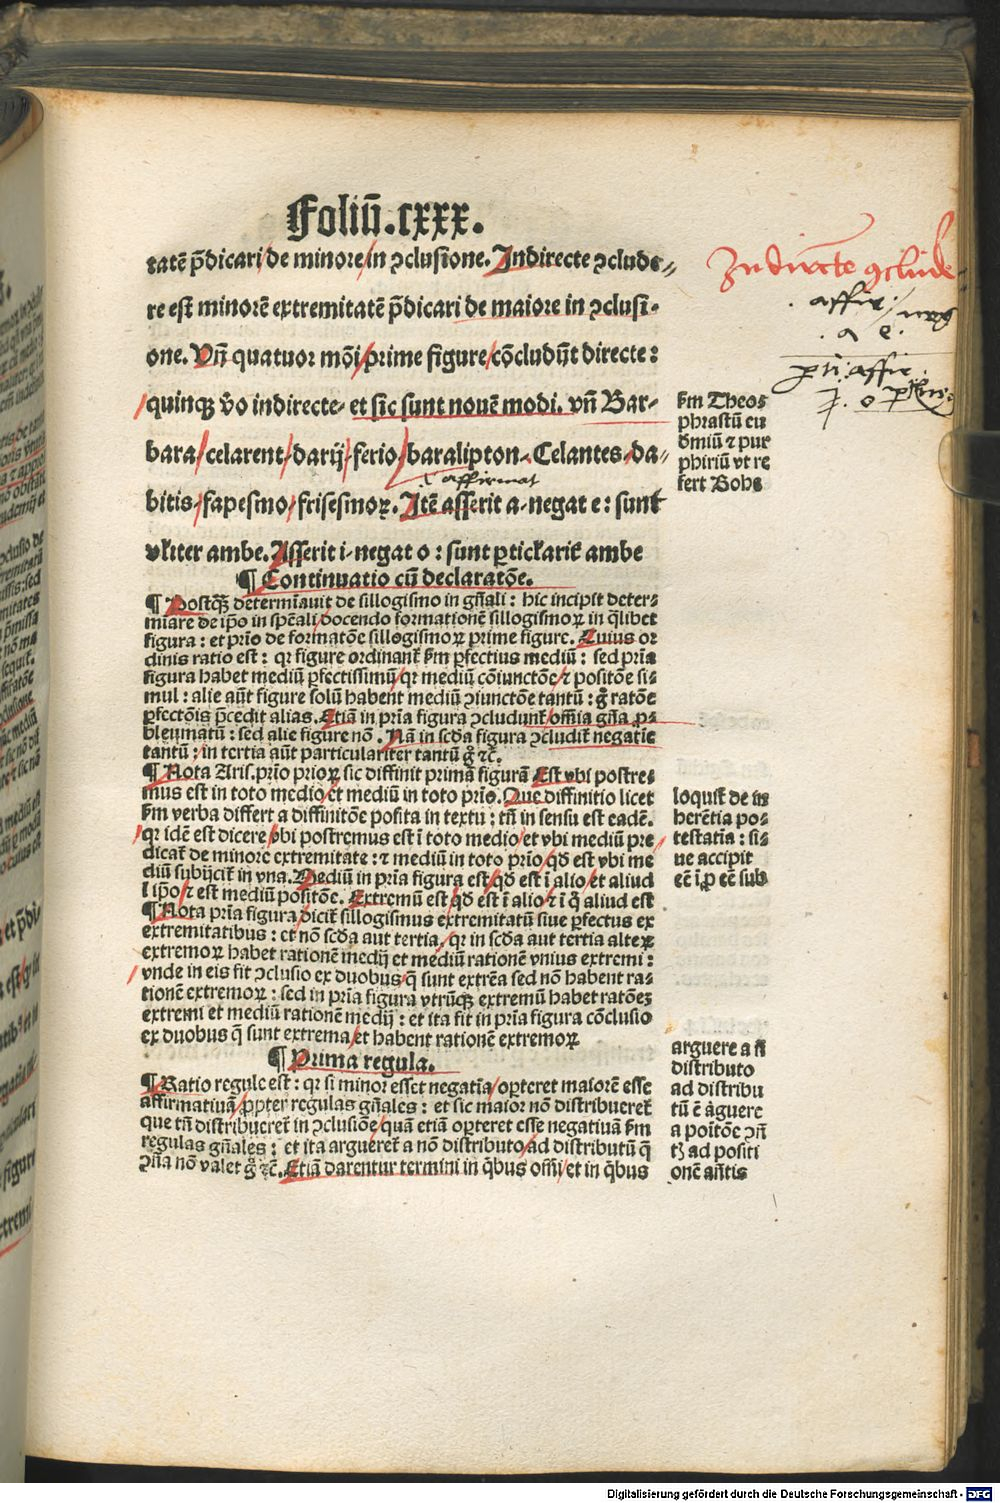 Foliū.cxxx.
tatē p̄dicari de minore in ↄclusione. Indirecte ↄclude-
re est minorē extremitatē p̄dicari de maiore in ↄclusi-
one. Vn̄ quatuor mōi prime figure cōcludūt directe:
quinqꝫ v̄o indirecte et sic sunt nouē modi. vn̄ Bar-
bara celarent darij ferio baralipton. Celantes da-
affirmat
bitis fapesmo frisesmoꝝ. Itē asserit a negat e: sunt
vl̄iter ambe. Asserit i negat o: sunt ꝑticl̄arit̄ ambe
¶ Continuatio cū declaratōe.
¶ Postq̄ꝫ determīauit de sillogismo in gn̄ali: hic incipit deter-
miare de ip̄o in spēali docendo formationē sillogismoꝝ in q̄libet
figura: et prīo de formatōe sillogismoꝝ prime figure. Cuius or
dinis ratio est: qꝛ figure ordinant̄ ẜm ꝑfectius mediū: sed prīa
figura habet mediū ꝑfectissimū qꝛ mediū cōiunctōe ⁊ positōe si-
mul: alie aūt figure solū habent mediū ↄiunctōe tantū: g̊ ratōe
ꝑfectōis p̄cedit alias. Etiā in prīa figura ↄcludunt̄ om̄ia gn̄a ꝓ-
bleumatū: sed alie figure nō. Nā in scd̄a figura ↄcludit̄ negatīe
tantū: in tertia aūt particulariter tantū g̊ ⁊c̄.
¶ Nota Aris. prīo prioꝝ sic diffinit primā figurā Est vbi postre-
mus est in toto medio et mediū in toto prīo. Que diffinitio licet
ẜm verba differt a diffinitōe posita in textu: tn̄ in sensu est eadē.
qꝛ idē est dicere vbi postremus est ī toto medio et vbi mediū pre
dicat̄ de minore extremitate: ⁊ mediū in toto prīo qd̄ est vbi me
diū subijcit̄ in vna. Mediū in prīa figura est qd̄ est ī alio et aliud
ī ip̄o ⁊ est mediū positōe. Extremū est qd̄ est ī alio ⁊ ī q̊ aliud est
¶ Nota prīa figura dicit̄ sillogismus extremitatū siue ꝑfectus ex
extremitatibus: et nō scd̄a aut tertia, qꝛ in scd̄a aut tertia alteꝝ
extremoꝝ habet rationē medij et mediū rationē vnius extremi:
vnde in eis fit ↄclusio ex duobus q̄ sunt extrēa sed nō habent ra-
tionē extremoꝝ: sed in prīa figura vtrūqꝫ extremū habet ratōeꝫ
extremi et mediū rationē medij: et ita fit in prīa figura cōclusio
ex duobus q̄ sunt extrema et habent rationē extremoꝝ
¶ Prima regula.
¶ Ratio regule est: qꝛ si minor esset negatīa oꝑteret maiorē esse
affirmatiuā ꝓpter regulas gn̄ales: et sic maior nō distribueret̄
que tn̄ distribueret̄ in ↄclusiōe quā etiā oꝑteret esse negatiuā ẜm
regulas gn̄ales: et ita argueret̄ a nō distributo ad distributū q̄
ↄn̄a nō valet g̊ ⁊c̄. Etiā darentur termini in q̄bus om̄i et in q̄bus
Indirecte ↄclude
affir: neg
a e.
affir.
ẜm Theo-
phrastū eu
dmiū ⁊ pur
phiriū vt re
fert Bohe
loquit̄ de in
herētia po-
testatia: si-
ue accipit
eē ī ꝓ eē sub
arguere a n̄
distributo
ad distribu
tū ē àguere
a poitōe ↄn̄
tꝭ ad positi
onē an̄tis
Digitalisierung gefördert durch die Deutsche Forschungsgemeinschaft - DFG